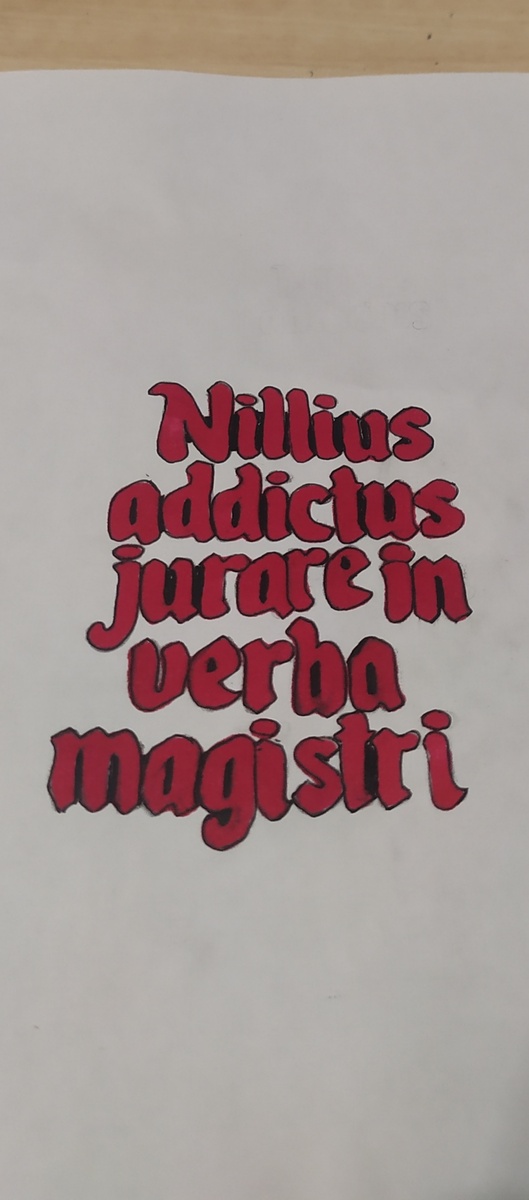 Nillius
addictus
jurare in
verba
magistri